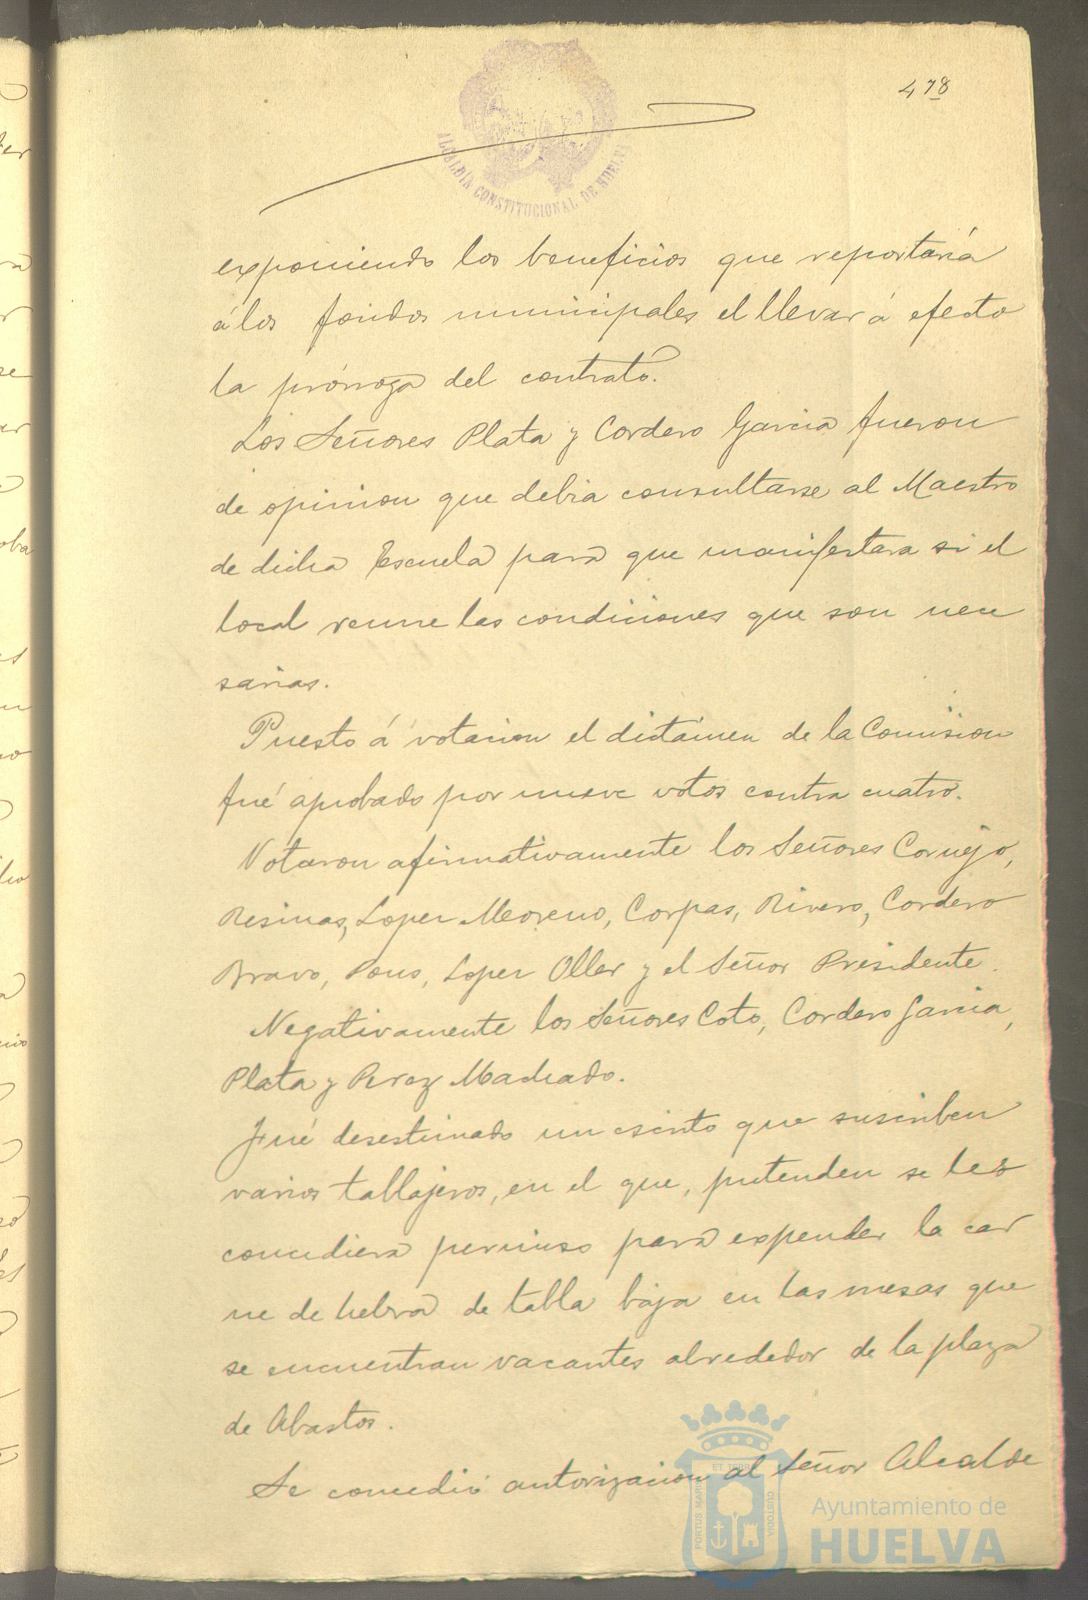 478
ALCALDÍA CONSTITUCIONAL DE HUELVA
exponiendo los beneficios que reportaría
á los fondos municipales el llevar á efecto
la prórroga del contrato.
Los Señores Plata y Cordero Garcia fueron
de opinion que debia consultarse al Maestro
de dicha Escuela para que manifestara si el
local reune las condiciones que son nece
sarias.
Puesto á votacion el dictámen de la Comision
fué aprobado por nueve votos contra cuatro.
Votaron afirmativamente los Señores Cornejo,
Resinas, Lopez Moreno, Corpas, Rivero, Cordero
Bravo, Pons, Lopez Oller y el Señor Presidente.
Negativamente los Señores Coto, Cordero Garcia,
Plata y Perez Machado.
Fué desestimado un escrito que suscriben
varios tablajeros, en el que, pretenden se les
concediera permiso para expender la car
ne de hebra de tabla baja en las mesas que
se encuentran vacantes alrededor de la plaza
de Abastos.
Se concedió autorizacion al Señor Alcalde
PORTUS MARIS ET TERRAE CUSTODIA
Ayuntamiento de
HUELVA